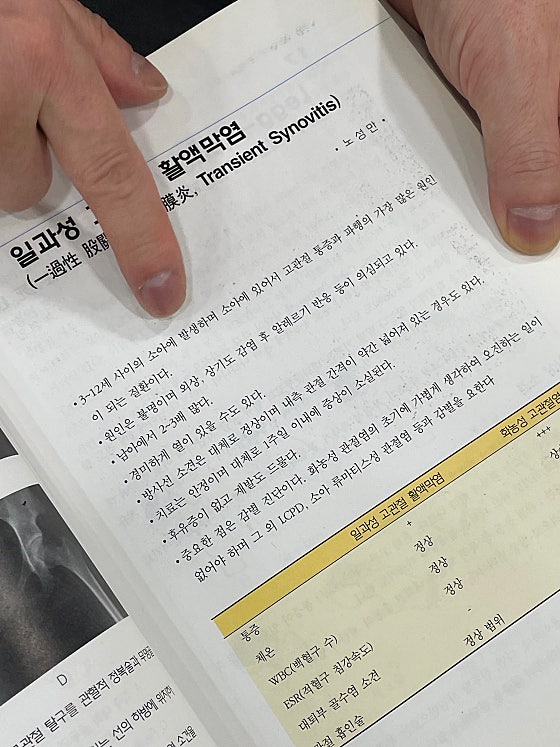 일과성 활액막염
(一過性 股 膜炎, Transient Synovitis)
• 노 성 만 •
• 3~12세 사이의 소아에 발생하며 소아에 있어서 고관절 통증과 파행의 가장 많은 원인
이 되는 질환이다.
• 원인은 불명이며 외상, 상기도 감염 후 알레르기 반응 등이 의심되고 있다.
• 남아에서 2~3배 많다.
• 경미하게 열이 있을 수도 있다.
• 방사선 소견은 대체로 정상이며 내측 관절 간격이 약간 넓어져 있는 경우도 있다.
• 치료는 안정이며 대체로 1주일 이내에 증상이 소실된다.
• 후유증이 없고 재발도 드물다.
• 중요한 점은 감별 진단이다. 화농성 관절염의 초기에 가볍게 생각하여 오진하는 일이
없어야 하며 그 외 LCPD, 소아 류마티스성 관절염 등과 감별을 요한다
일과성 고관절 활액막염 화농성 고관절염
통증 + +++
체온 정상
WBC(백혈구 수) 정상
ESR(적혈구 침강속도) 정상
대퇴부 골수염 소견 -
관절 흡인술 정상 범위
D
고관절 탈구를 관혈적 정복술과
는, 선의 하방에
소견을